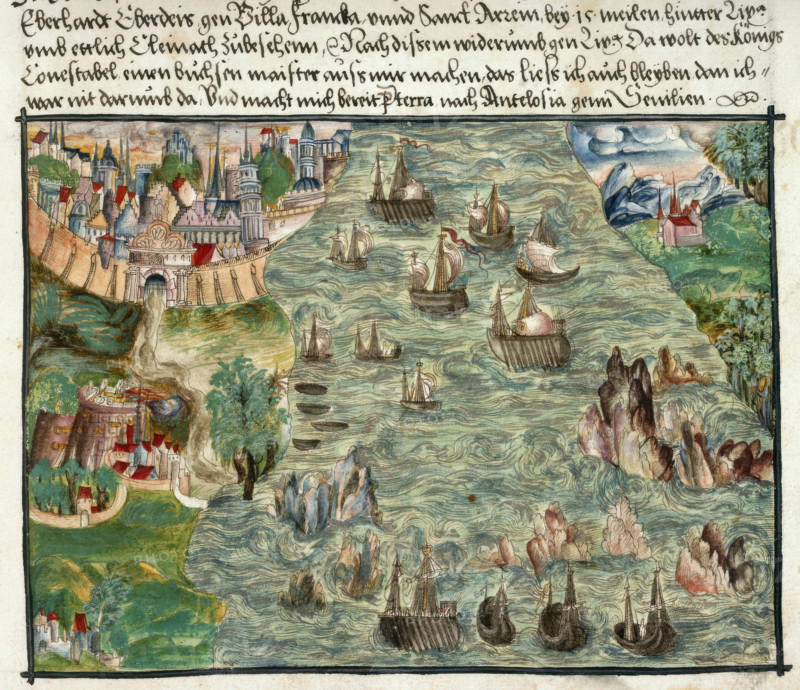 Eberhardt Eberders gen Villa Francka, vnnd Sanct Arrem, bey 15 meilen, hintter
vmb ettlich Cleinath Zubesehenn, Nach dissem widerumb gen Da wolt des Königs
Conestabel, einen buchsen maister auss mir machen, das liess ich auch bleyben, dan ich
war nit darumb da, Vnd macht mich bereit p terra nach Antelosia genn Seuilien.